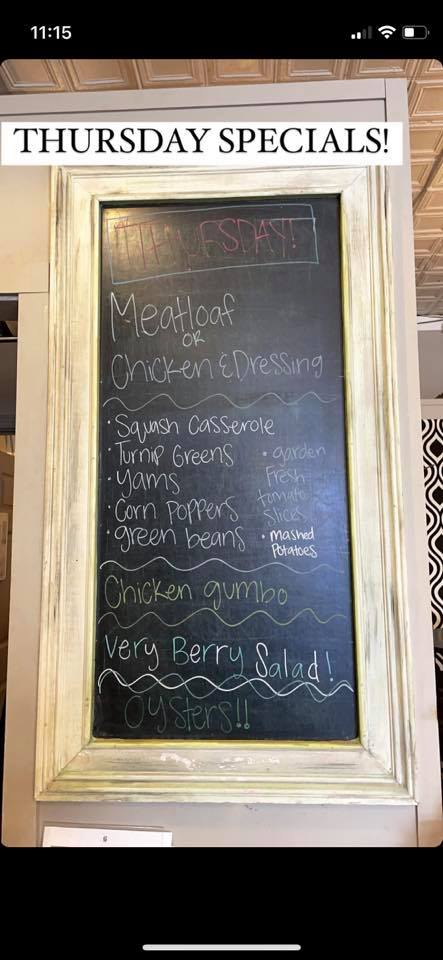 11:15
THURSDAY SPECIALS!
THURSDAY!
Meatloaf
OR
Chicken & Dressing
• Squash Casserole
• Turnip Greens
• yams
• Corn Poppers
• green beans
• garden
Fresh
tomato
slices
• mashed
Potatoes
Chicken gumbo
Very Berry Salad!
Oysters!!
6